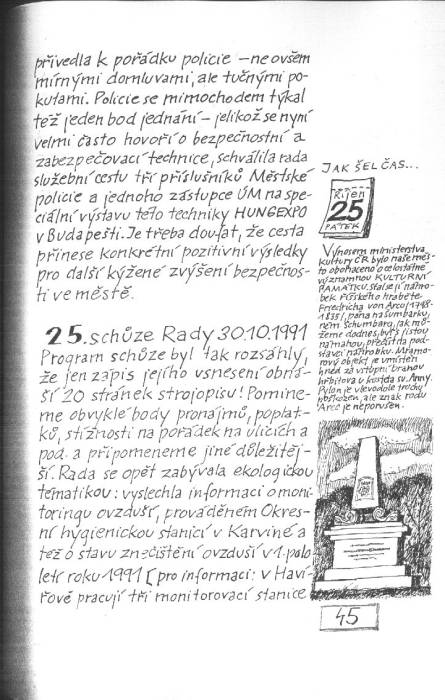 přivedla k pořádku policie – ne ovšem
mírnými domluvami, ale tučnými po-
kutami. Policie se mimochodem týkal
též jeden bod jednání – jelikož se nyní
velmi často hovoří o bezpečnostní a
zabezpečovací technice, schválila rada
služební cestu tří příslušníků Městské
policie a jednoho zástupce ÚM na spe-
ciální výstavu této techniky HUNGEXPO
v Budapešti. Je třeba doufat, že cesta
přinese konkrétní pozitivní výsledky
pro další kýžené zvýšení bezpečnos-
ti ve městě.
25. schůze Rady 30.10.1991
Program schůze byl tak rozsáhlý,
že jen zápis jejího usnesení obná-
ší 20 stránek strojopisu! Pomine-
me obvyklé body pronájmů, poplat-
ků, stížností na pořádek na ulicích a
pod. a připomeneme jiné důležitěj-
ší. Rada se opět zabývala ekologickou
tématikou: vyslechla informaci o moni-
toringu ovzduší, prováděném Okres-
ní hygienickou stanicí v Karviné a
též o stavu znečištění ovzduší v 1. polo
letí roku 1991 (pro informaci: v Haví-
řově pracují tři monitorovací stanice
JAK ŠEL ČAS...
Říjen
25
PÁTEK
Výnosem ministerstva
kultury ČR bylo naše měs-
to obohaceno o celostátně
významnou KULTURNÍ
PAMÁTKU. Stal se jí náhro-
bek říšského hraběte
Friedricha von Arco
pána na Šumbarku,
ném Schumbarg, jak mů-
žeme dodnes, byť s jistou
námahou, přečíst na pod-
stavci náhrobku. Mramo-
rový objekt je umístěn
hned za vstupní branou
hřbitova u kostela sv. Anny.
Pylon je všelijak trochu
obtlučen, ale znak rodu
Arco je neporušen.
45